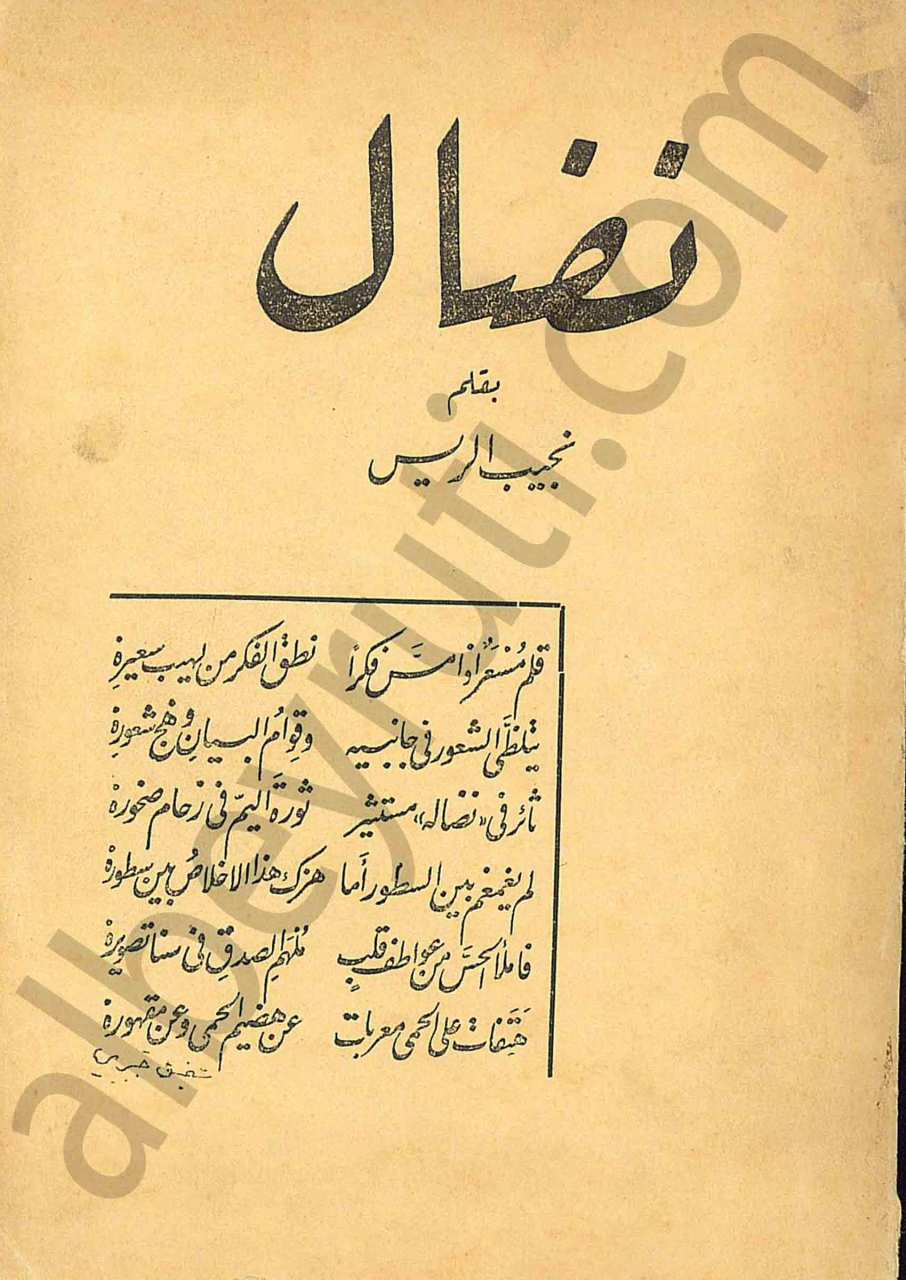 نضال
بقلم
نجيب الريس
قلم مُسَعَّرٌ اذا مسَّ فكرًا نطق الفكر من لهيب سعيرهِ
يتلظَّى الشعور في جانبيه وقِوامُ البيانِ وهْج شعورِهْ
ثائر في «نضاله» مستثير ثورةَ اليمّ في زحام صخورهْ
لم يغمغم بين السطور أَما هزك هذا الاخلاصُ بين سطورهْ
فاملأ الحسَّ من عواطف قلبٍ مُلهَمِ الصدقِ في سنا تصويرهْ
هَتَفات على الحمى معربات عن هضيم الحمى وعن مقهورهْ
شفيق جبري
albeyruti.com